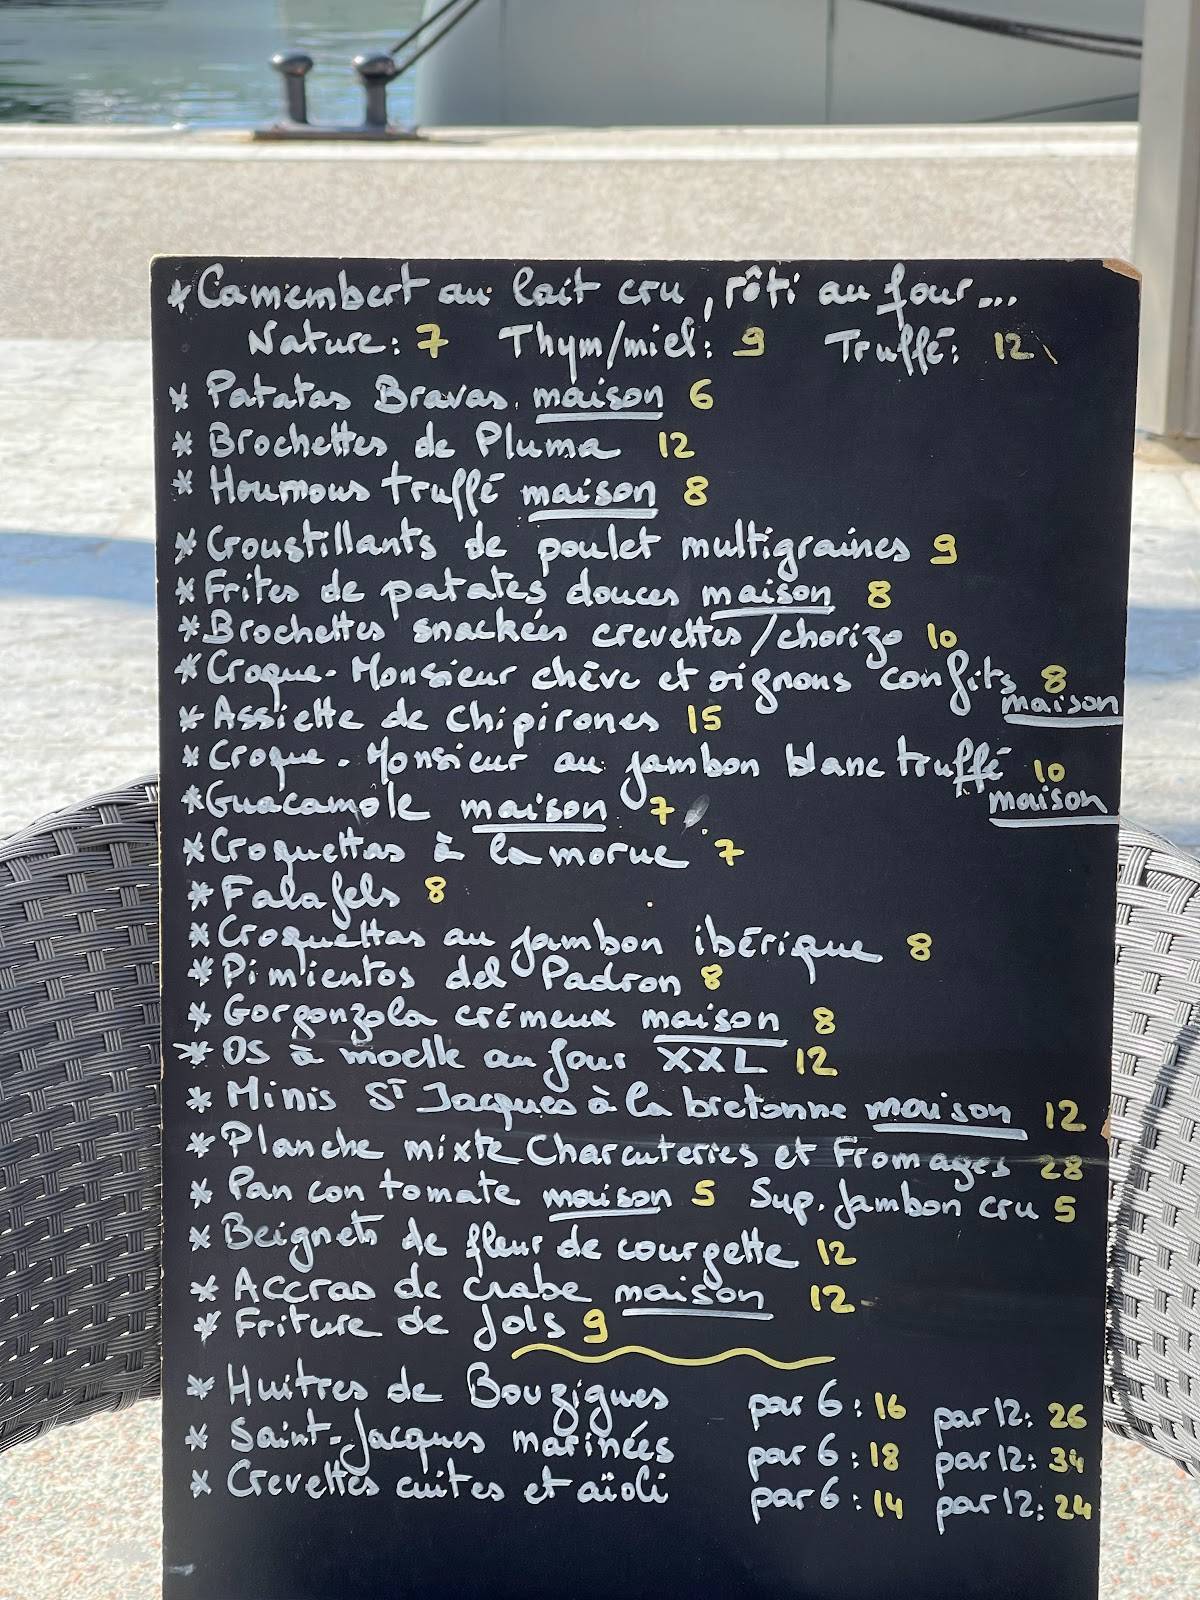 * Camembert au lait cru, rôti au four...
Nature: 7 Thym/miel: 9 Truffé: 12
* Patatas Bravas maison 6
* Brochettes de Pluma 12
* Houmous truffé maison 8
* Croustillants de poulet multigraines 9
* Frites de patates douces maison 8
* Brochettes snackées crevettes/chorizo 10
* Croque-Monsieur chèvre et oignons confits 8
maison
* Assiette de chipirones 15
* Croque-Monsieur au jambon blanc truffé 10
maison
* Guacamole maison 7
* Croquettas à la morue 7
* Falafels 8
* Croquettas au jambon ibérique 8
* Pimientos del Padron 8
* Gorgonzola crémeux maison 8
* OS à moelle au four XXL 12
* Minis St Jacques à la bretonne maison 12
* Planche mixte Charcuteries et Fromages 28
* Pan con tomate maison 5 Sup. Jambon cru 5
* Beignets de fleur de courgette 12
* Accras de crabe maison 12
* Friture de Jols 9
* Huîtres de Bouzigues par 6: 16 par 12: 26
* Saint-Jacques marinées par 6: 18 par 12: 34
* Crevettes cuites et aïoli par 6: 14 par 12: 24